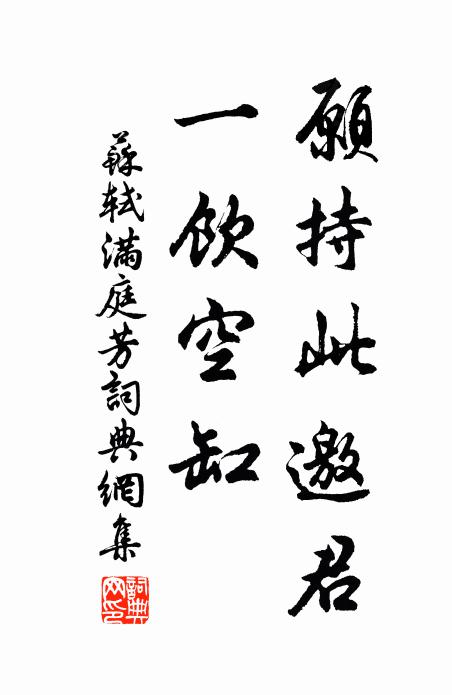 願持此邀君
一飲空缸
蘇軾滿庭芳詞典網集
詞典
网印